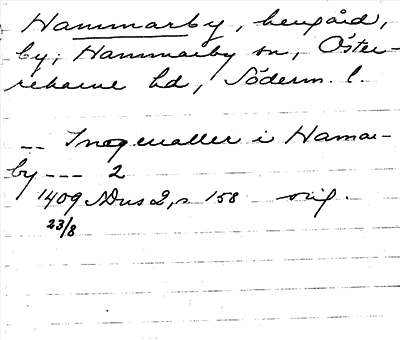 Hammarby, herrgård,
by; Hammarby sn, Öster-
rekarne hd, Söderm. l.
-- Ingevaller i Hamar-
by --- 2
1409 NDns 2, s 158 orig.
23/8